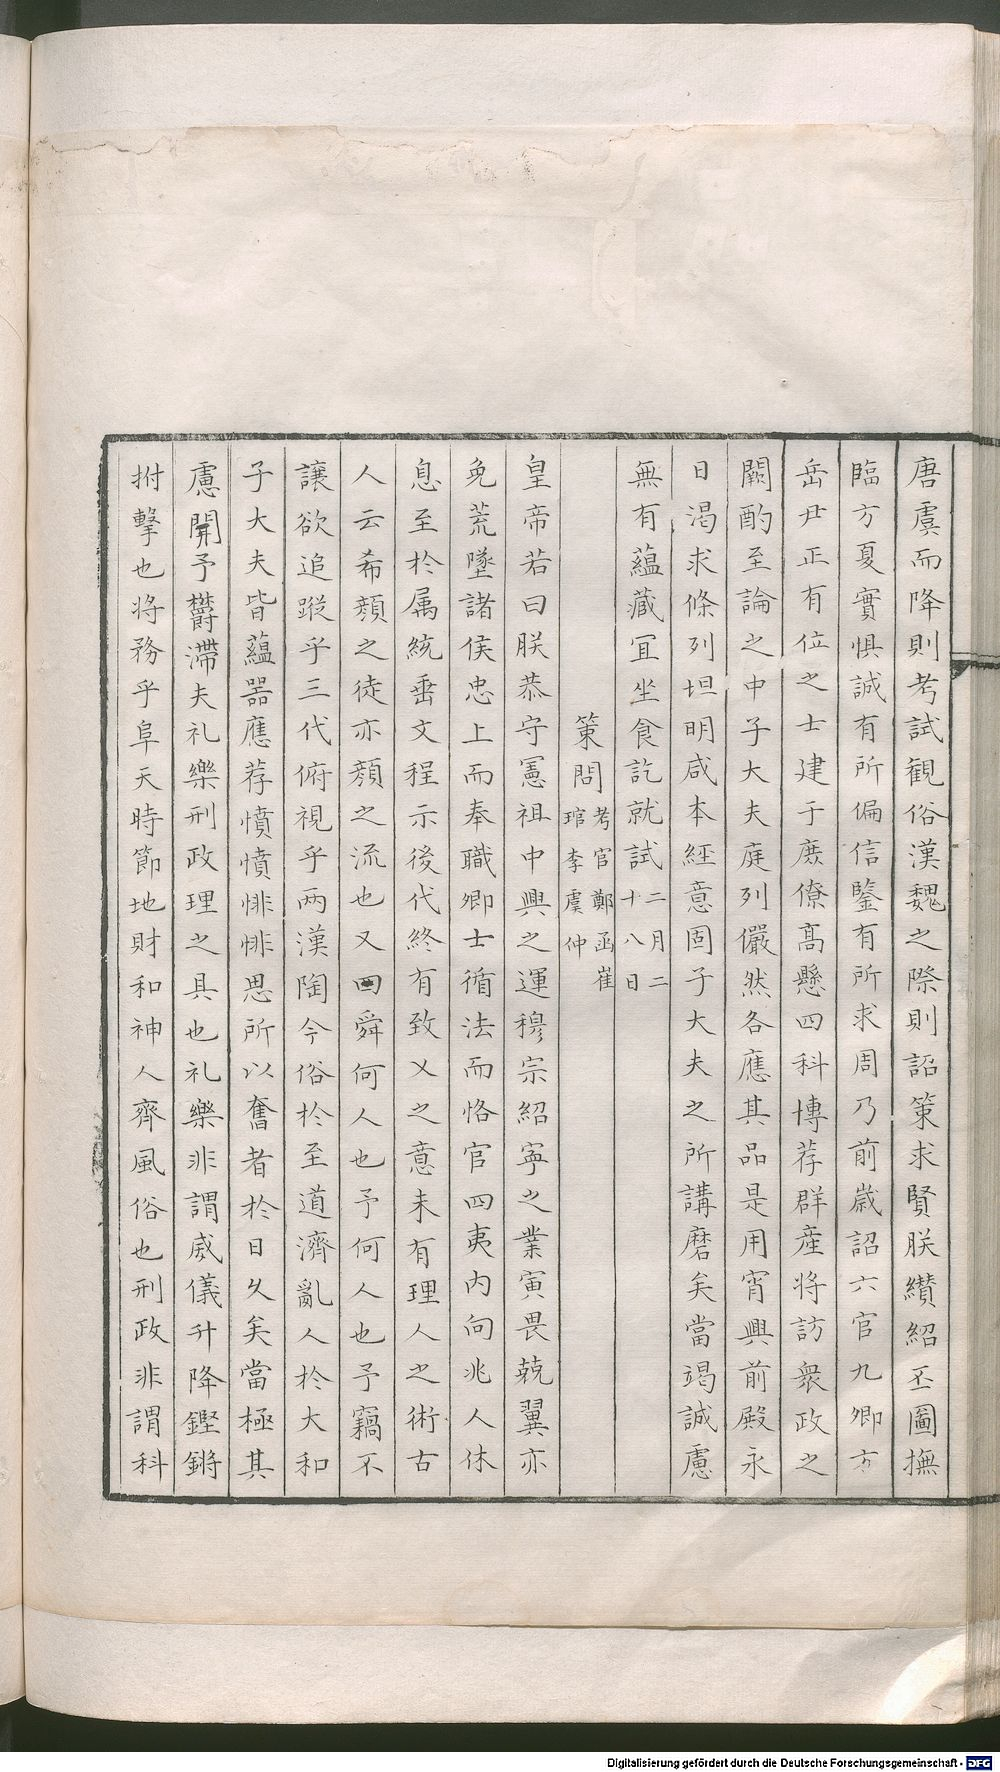 唐虞而降則考試觀俗漢魏之際則詔策求賢朕纉紹丕圖撫
臨方夏實惧誠有所偏信鑒有所求周乃前歳詔六官九卿方
岳尹正有位之士建于庶僚髙懸四科博荐群産将訪衆政之
闕酌至論之中子大夫庭列儼然各應其品是用宵興前殿永
日渇求條列坦明咸本經意固子大夫之所講磨矣當竭誠慮
無有蘊藏冝坐食訖就試二月二十八日
策問考官鄭函崔琯李虞仲
皇帝若曰朕恭守憲祖中興之運穆宗紹寧之業寅畏兢翼亦
免荒墜諸侯忠上而奉職卿士循法而恪官四夷内向兆人休
息至於属統垂文程示後代終有致乂之意未有理人之術古
人云希顔之徒亦顔之流也又曰舜何人也予何人也予竊不
讓欲追蹤乎三代俯視乎两漢陶今俗於至道濟亂人於大和
子大夫皆蘊噐應荐憤憤悱悱思所以奮者於日久矣當極其
慮開予欝滯夫礼樂刑政理之具也礼樂非謂威儀升降鏗鏘
拊擊也将務乎阜天時節地財和神人齊風俗也刑政非謂科
Digitalisierung gefördert durch die Deutsche Forschungsgemeinschaft - DFG